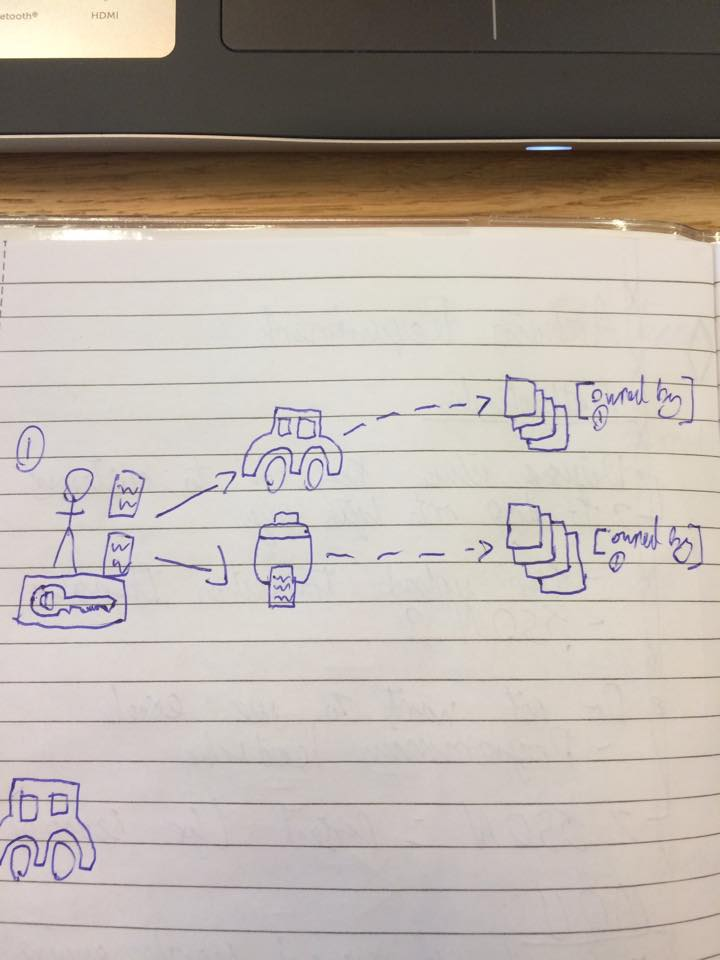 etooth®
HDMI
[owned by
①]
①
[owned by
①]